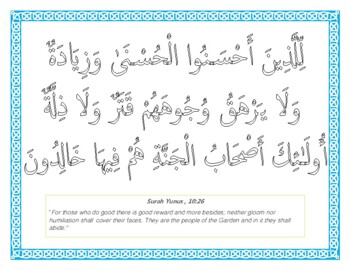 لِّلَّذِينَ أَحْسَنُوا الْحُسْنَىٰ وَزِيَادَةٌ
وَلَا يَرْهَقُ وُجُوهَهُمْ قَتَرٌ وَلَا ذِلَّةٌ
أُولَٰئِكَ أَصْحَابُ الْجَنَّةِ هُمْ فِيهَا خَالِدُونَ
Surah Yunus , 10:26
"For those who do good there is good reward and more besides; neither gloom nor
humiliation shall cover their faces. They are the people of the Garden and in it they shall
abide."